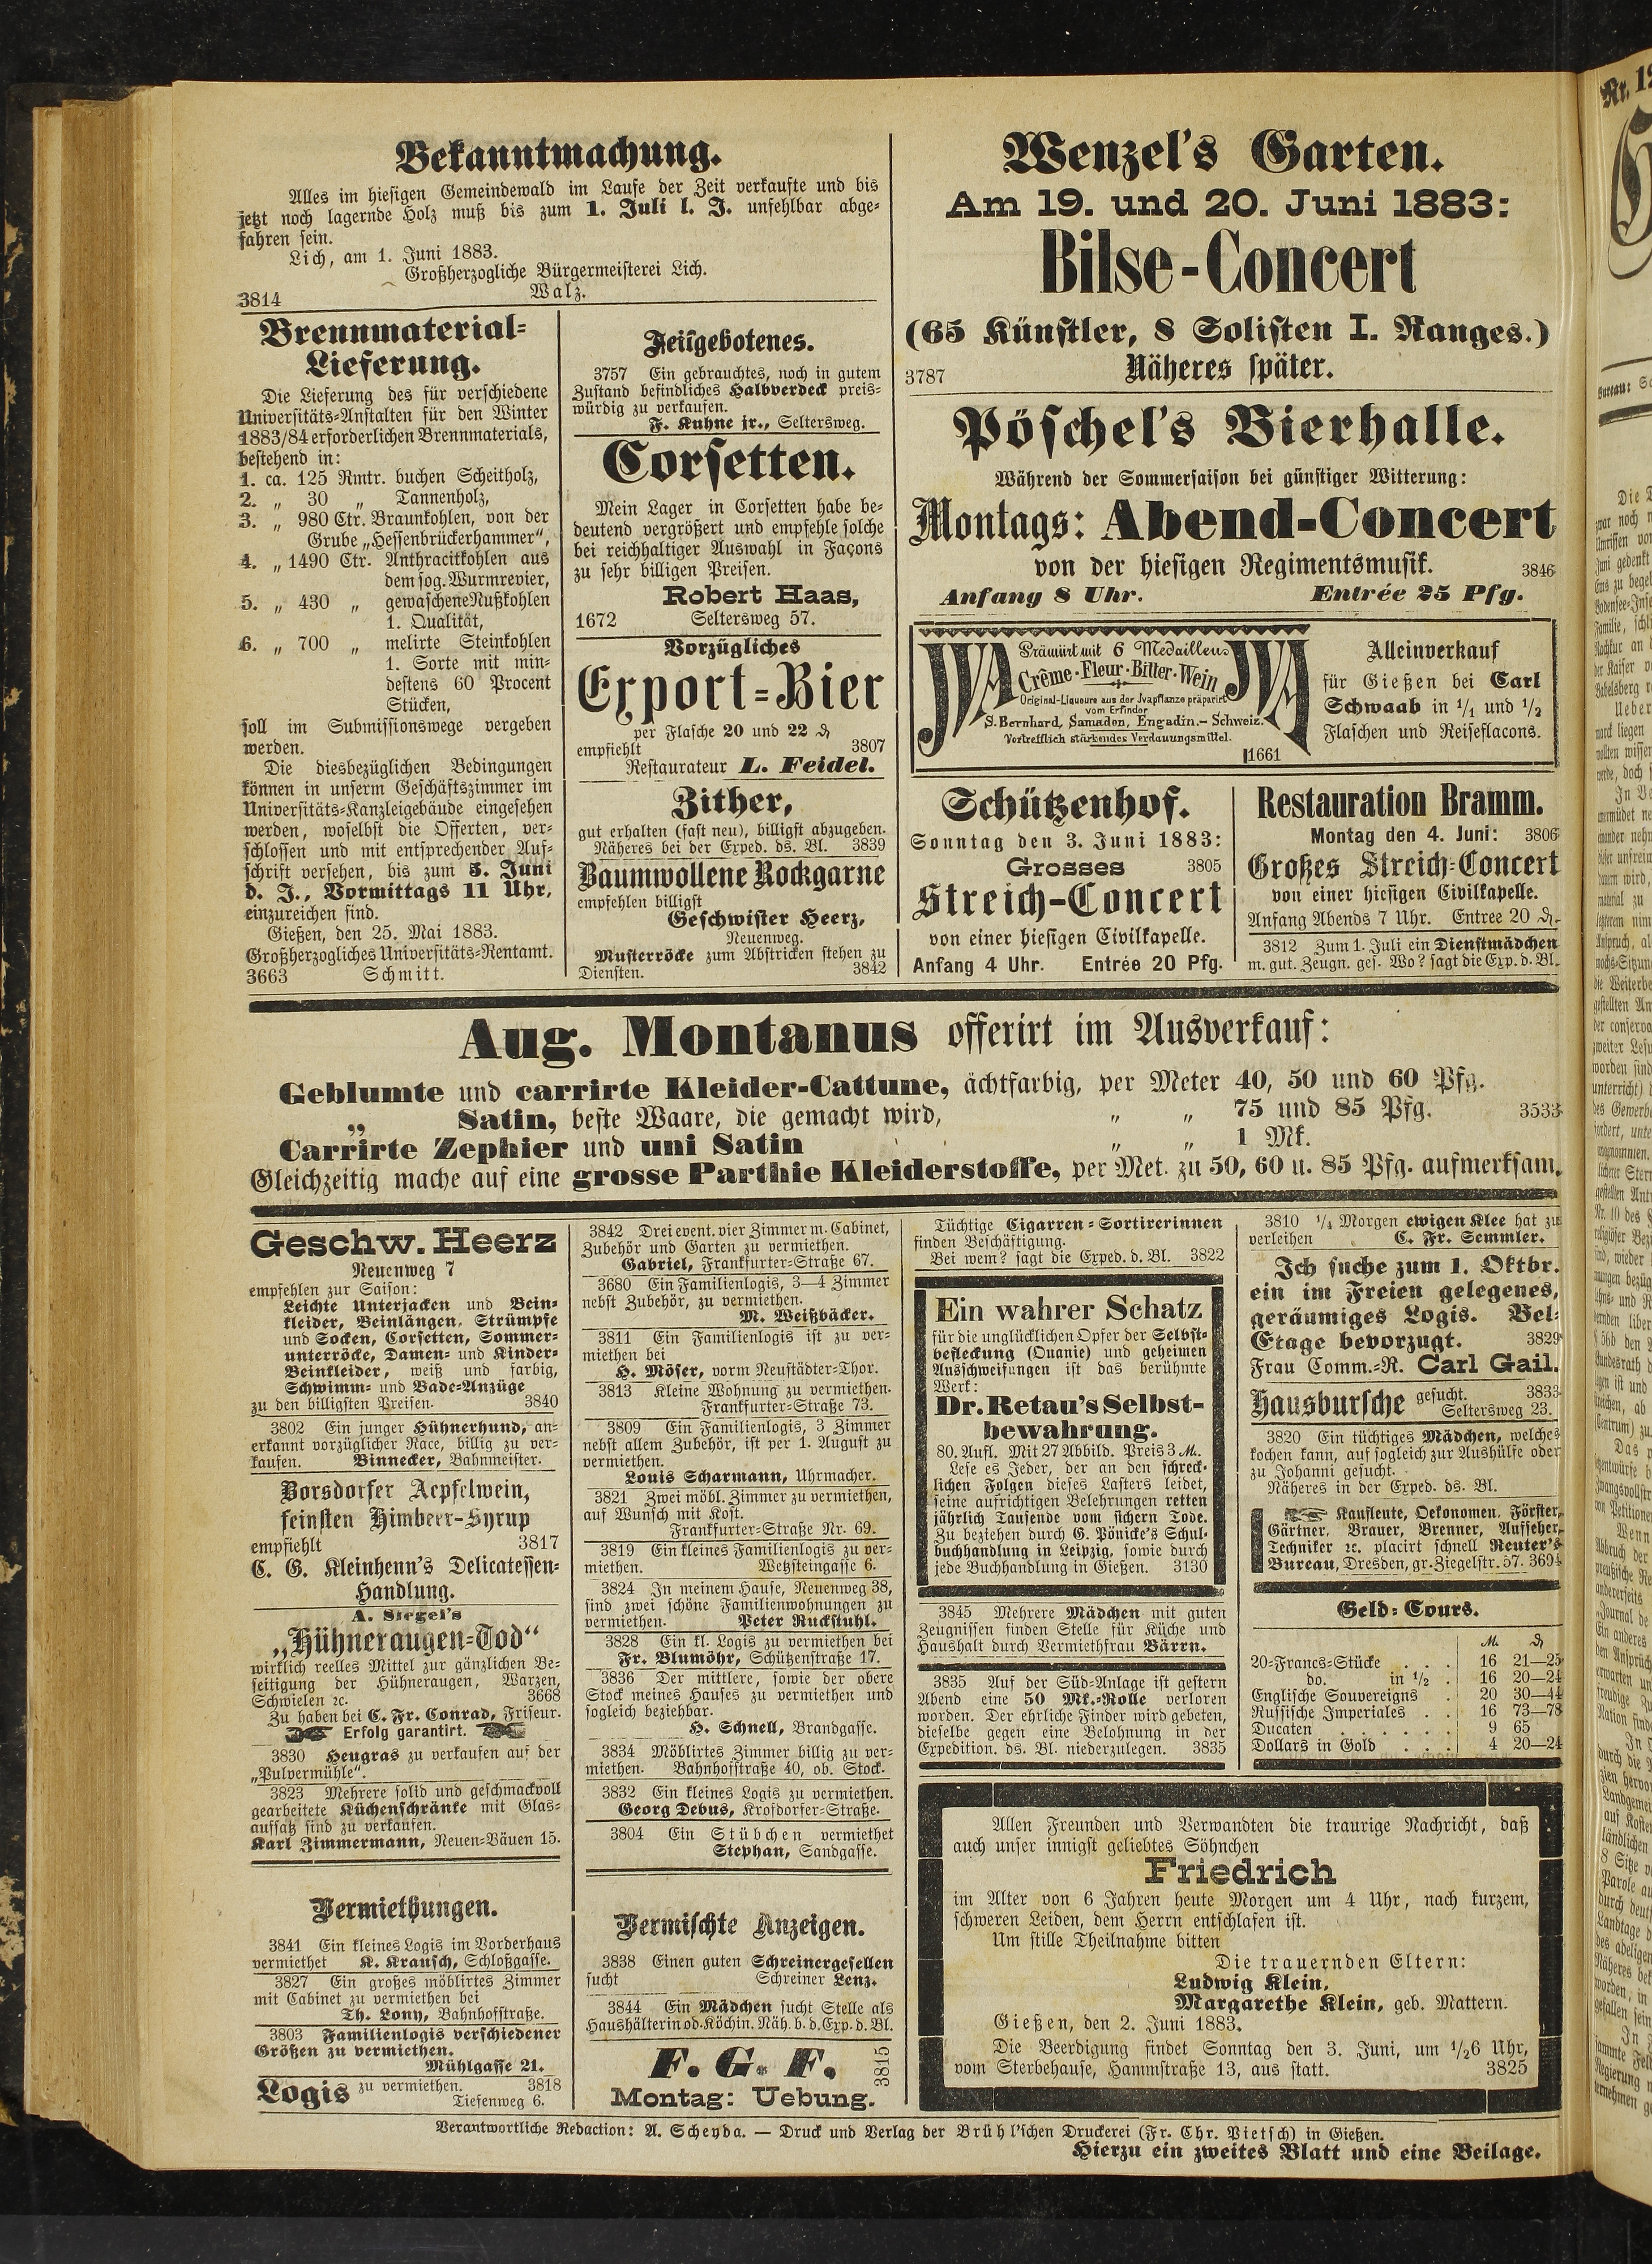 Bekanntmachung.
Alles im hiesigen Gemeindewald im Laufe der Zeit verkaufte und bis
jetzt noch lagernde Holz muß bis zum 1. Juli l. J. unfehlbar abge-
fahren sein.
Lich, am 1. Juni 1883.
Großherzogliche Bürgermeisterei Lich.
3814 Walz.
Brennmaterial-
Lieferung.
Die Lieferung des für verschiedene
Universitäts-Anstalten für den Winter
1883/84 erforderlichen Brennmaterials,
bestehend in:
1. ca. 125 Rmtr. buchen Scheitholz,
2. „ 30 „ Tannenholz,
3. „ 980 Ctr. Braunkohlen, von der
Grube „Hessenbrückerhammer“,
4. „ 1490 Ctr. Anthracitkohlen aus
dem sog. Wurmrevier,
5. „ 430 „ gewaschene Nußkohlen
1. Qualität,
6. „ 700 „ melirte Steinkohlen
1. Sorte mit min-
destens 60 Procent
Stücken,
soll im Submissionswege vergeben
werden.
Die diesbezüglichen Bedingungen
können in unserm Geschäftszimmer im
Universitäts-Kanzleigebäude eingesehen
werden, woselbst die Offerten, ver-
schlossen und mit entsprechender Auf-
schrift versehen, bis zum 5. Juni
d. J., Vormittags 11 Uhr,
einzureichen sind.
Gießen, den 25. Mai 1883.
Großherzogliches Universitäts-Rentamt.
3663 Schmitt.
Feilgebotenes.
3757 Ein gebrauchtes, noch in gutem
Zustand befindliches Halbverdeck preis-
würdig zu verkaufen.
F. Kuhne jr., Seltersweg.
Corsetten.
Mein Lager in Corsetten habe be-
deutend vergrößert und empfehle solche
bei reichhaltiger Auswahl in Façons
zu sehr billigen Preisen.
Robert Haas,
1672 Seltersweg 57.
Vorzügliches
Export-Bier
per Flasche 20 und 22 ₰
empfiehlt 3807
Restaurateur L. Feidel.
Zither,
gut erhalten (fast neu), billigst abzugeben.
Näheres bei der Exped. ds. Bl. 3839
Baumwollene Rockgarne
empfehlen billigst
Geschwister Heerz,
Neuenweg.
Musterröcke zum Abstricken stehen zu
Diensten. 3842
Wenzel's Garten.
Am 19. und 20. Juni 1883:
Bilse-Concert
(65 Künstler, 8 Solisten I. Ranges.)
3787 Näheres später.
Pöschel's Bierhalle.
Während der Sommersaison bei günstiger Witterung:
Montags: Abend-Concert
von der hiesigen Regimentsmusik. 3846
Anfang 8 Uhr. Entrée 25 Pfg.
JVA JVA
Prämiirt mit 6 Medaillen
Crême-Fleur-Bitter-Wein
Original-Liqueure aus der Jvapflanze präparirt
vom Erfinder
S. Bernhard, Samaden, Engadin. - Schweiz.
Vortrefflich stärkendes Verdauungsmittel.
1661
Alleinverkauf
für Gießen bei Carl
Schwaab in 1/1 und 1/2
Flaschen und Reiseflacons.
Schützenhof.
Sonntag den 3. Juni 1883:
Grosses 3805
Streich-Concert
von einer hiesigen Civilkapelle.
Anfang 4 Uhr. Entrée 20 Pfg.
Restauration Bramm.
Montag den 4. Juni: 3806
Großes Streich-Concert
von einer hiesigen Civilkapelle.
Anfang Abends 7 Uhr. Entree 20 ₰.
3812 Zum 1. Juli ein Dienstmädchen
m. gut. Zeugn. ges. Wo? sagt die Exp. d. Bl.
Aug. Montanus offerirt im Ausverkauf:
Geblumte und carrirte Kleider-Cattune, ächtfarbig, per Meter 40, 50 und 60 Pfg.
„ Satin, beste Waare, die gemacht wird, „ „ 75 und 85 Pfg. 3533
Carrirte Zephier und uni Satin „ „ 1 Mk.
Gleichzeitig mache auf eine grosse Parthie Kleiderstoffe, per Met. zu 50, 60 u. 85 Pfg. aufmerksam.
Geschw. Heerz
Neuenweg 7
empfehlen zur Saison:
Leichte Unterjacken und Bein-
kleider, Beinlängen, Strümpfe
und Socken, Corsetten, Sommer-
unterröcke, Damen- und Kinder-
Beinkleider, weiß und farbig,
Schwimm- und Bade-Anzüge
zu den billigsten Preisen. 3840
3802 Ein junger Hühnerhund, an-
erkannt vorzüglicher Race, billig zu ver-
kaufen. Binnecker, Bahnmeister.
Borsdorfer Aepfelwein,
feinsten Himbeer-Syrup
empfiehlt 3817
C. G. Kleinhenn's Delicatessen-
Handlung.
A. Siegel's
„Hühneraugen-Tod“
wirklich reelles Mittel zur gänzlichen Be-
seitigung der Hühneraugen, Warzen,
Schwielen ꝛc. 3668
Zu haben bei C. Fr. Conrad, Friseur.
Erfolg garantirt.
3830 Heugras zu verkaufen auf der
„Pulvermühle“.
3823 Mehrere solid und geschmackvoll
gearbeitete Küchenschränke mit Glas-
aufsatz sind zu verkaufen.
Karl Zimmermann, Neuen-Bäuen 15.
Vermiethungen.
3841 Ein kleines Logis im Vorderhaus
vermiethet K. Krausch, Schloßgasse.
3827 Ein großes möblirtes Zimmer
mit Cabinet zu vermiethen bei
Th. Lony, Bahnhofstraße.
3803 Familienlogis verschiedener
Größen zu vermiethen.
Mühlgasse 21.
Logis zu vermiethen. 3818
Tiefenweg 6.
3842 Drei event. vier Zimmer m. Cabinet,
Zubehör und Garten zu vermiethen.
Gabriel, Frankfurter-Straße 67.
3680 Ein Familienlogis, 3—4 Zimmer
nebst Zubehör, zu vermiethen.
M. Weißbäcker.
3811 Ein Familienlogis ist zu ver-
miethen bei
H. Möser, vorm Neustädter-Thor.
3813 Kleine Wohnung zu vermiethen.
Frankfurter-Straße 73.
3809 Ein Familienlogis, 3 Zimmer
nebst allem Zubehör, ist per 1. August zu
vermiethen.
Louis Scharmann, Uhrmacher.
3821 Zwei möbl. Zimmer zu vermiethen,
auf Wunsch mit Kost.
Frankfurter-Straße Nr. 69.
3819 Ein kleines Familienlogis zu ver-
miethen. Wetzsteingasse 6.
3824 In meinem Hause, Neuenweg 38,
sind zwei schöne Familienwohnungen zu
vermiethen. Peter Ruckstuhl.
3828 Ein kl. Logis zu vermiethen bei
Fr. Blumöhr, Schützenstraße 17.
3836 Der mittlere, sowie der obere
Stock meines Hauses zu vermiethen und
sogleich beziehbar.
H. Schnell, Brandgasse.
3834 Möblirtes Zimmer billig zu ver-
miethen. Bahnhofstraße 40, ob. Stock.
3832 Ein kleines Logis zu vermiethen.
Georg Debus, Krofdorfer-Straße.
3804 Ein Stübchen vermiethet
Stephan, Sandgasse.
Vermischte Anzeigen.
3838 Einen guten Schreinergesellen
sucht Schreiner Lenz.
3844 Ein Mädchen sucht Stelle als
Haushälterin od. Köchin. Näh. b. d. Exp. d. Bl.
F. G. F. 3815
Montag: Uebung.
Tüchtige Cigarren-Sortirerinnen
finden Beschäftigung.
Bei wem? sagt die Exped. d. Bl. 3822
Ein wahrer Schatz
für die unglücklichen Opfer der Selbst-
befleckung (Onanie) und geheimen
Ausschweifungen ist das berühmte
Werk:
Dr. Retau's Selbst-
bewahrung.
80. Aufl. Mit 27 Abbild. Preis 3 M.
Lese es Jeder, der an den schreck-
lichen Folgen dieses Lasters leidet,
seine aufrichtigen Belehrungen retten
jährlich Tausende vom sichern Tode.
Zu beziehen durch G. Pönicke's Schul-
buchhandlung in Leipzig, sowie durch
jede Buchhandlung in Gießen. 3130
3845 Mehrere Mädchen mit guten
Zeugnissen finden Stelle für Küche und
Haushalt durch Vermiethfrau Bärrn.
3835 Auf der Süd-Anlage ist gestern
Abend eine 50 Mk.-Rolle verloren
worden. Der ehrliche Finder wird gebeten,
dieselbe gegen eine Belohnung in der
Expedition. ds. Bl. niederzulegen. 3835
3810 1/4 Morgen ewigen Klee hat zu
verleihen C. Fr. Semmler.
Ich suche zum 1. Oktbr.
ein im Freien gelegenes,
geräumiges Logis. Bel-
Etage bevorzugt. 3829
Frau Comm.-R. Carl Gail.
Hausbursche gesucht. 3833
Seltersweg 23.
3820 Ein tüchtiges Mädchen, welches
kochen kann, auf sogleich zur Aushülfe oder
zu Johanni gesucht.
Näheres in der Exped. ds. Bl.
Kaufleute, Oekonomen, Förster,
Gärtner, Brauer, Brenner, Aufseher,
Techniker ꝛc. placirt schnell Reuter's
Bureau, Dresden, gr. Ziegelstr. 57. 3694
Geld-Cours.
M. ₰
20-Francs-Stücke . . . 16 21—25
do. in 1/2 . 16 20—24
Englische Souvereigns . 20 30—44
Russische Imperiales . . 16 73—78
Ducaten . . . . . . 9 65
Dollars in Gold . . . 4 20—24
Allen Freunden und Verwandten die traurige Nachricht, daß
auch unser innigst geliebtes Söhnchen
Friedrich
im Alter von 6 Jahren heute Morgen um 4 Uhr, nach kurzem,
schweren Leiden, dem Herrn entschlafen ist.
Um stille Theilnahme bitten
Die trauernden Eltern:
Ludwig Klein,
Margarethe Klein, geb. Mattern.
Gießen, den 2. Juni 1883.
Die Beerdigung findet Sonntag den 3. Juni, um 1/26 Uhr,
vom Sterbehause, Hammstraße 13, aus statt. 3825
Verantwortliche Redaction: A. Scheyda. — Druck und Verlag der Brühl'schen Druckerei (Fr. Chr. Pietsch) in Gießen.
Hierzu ein zweites Blatt und eine Beilage.